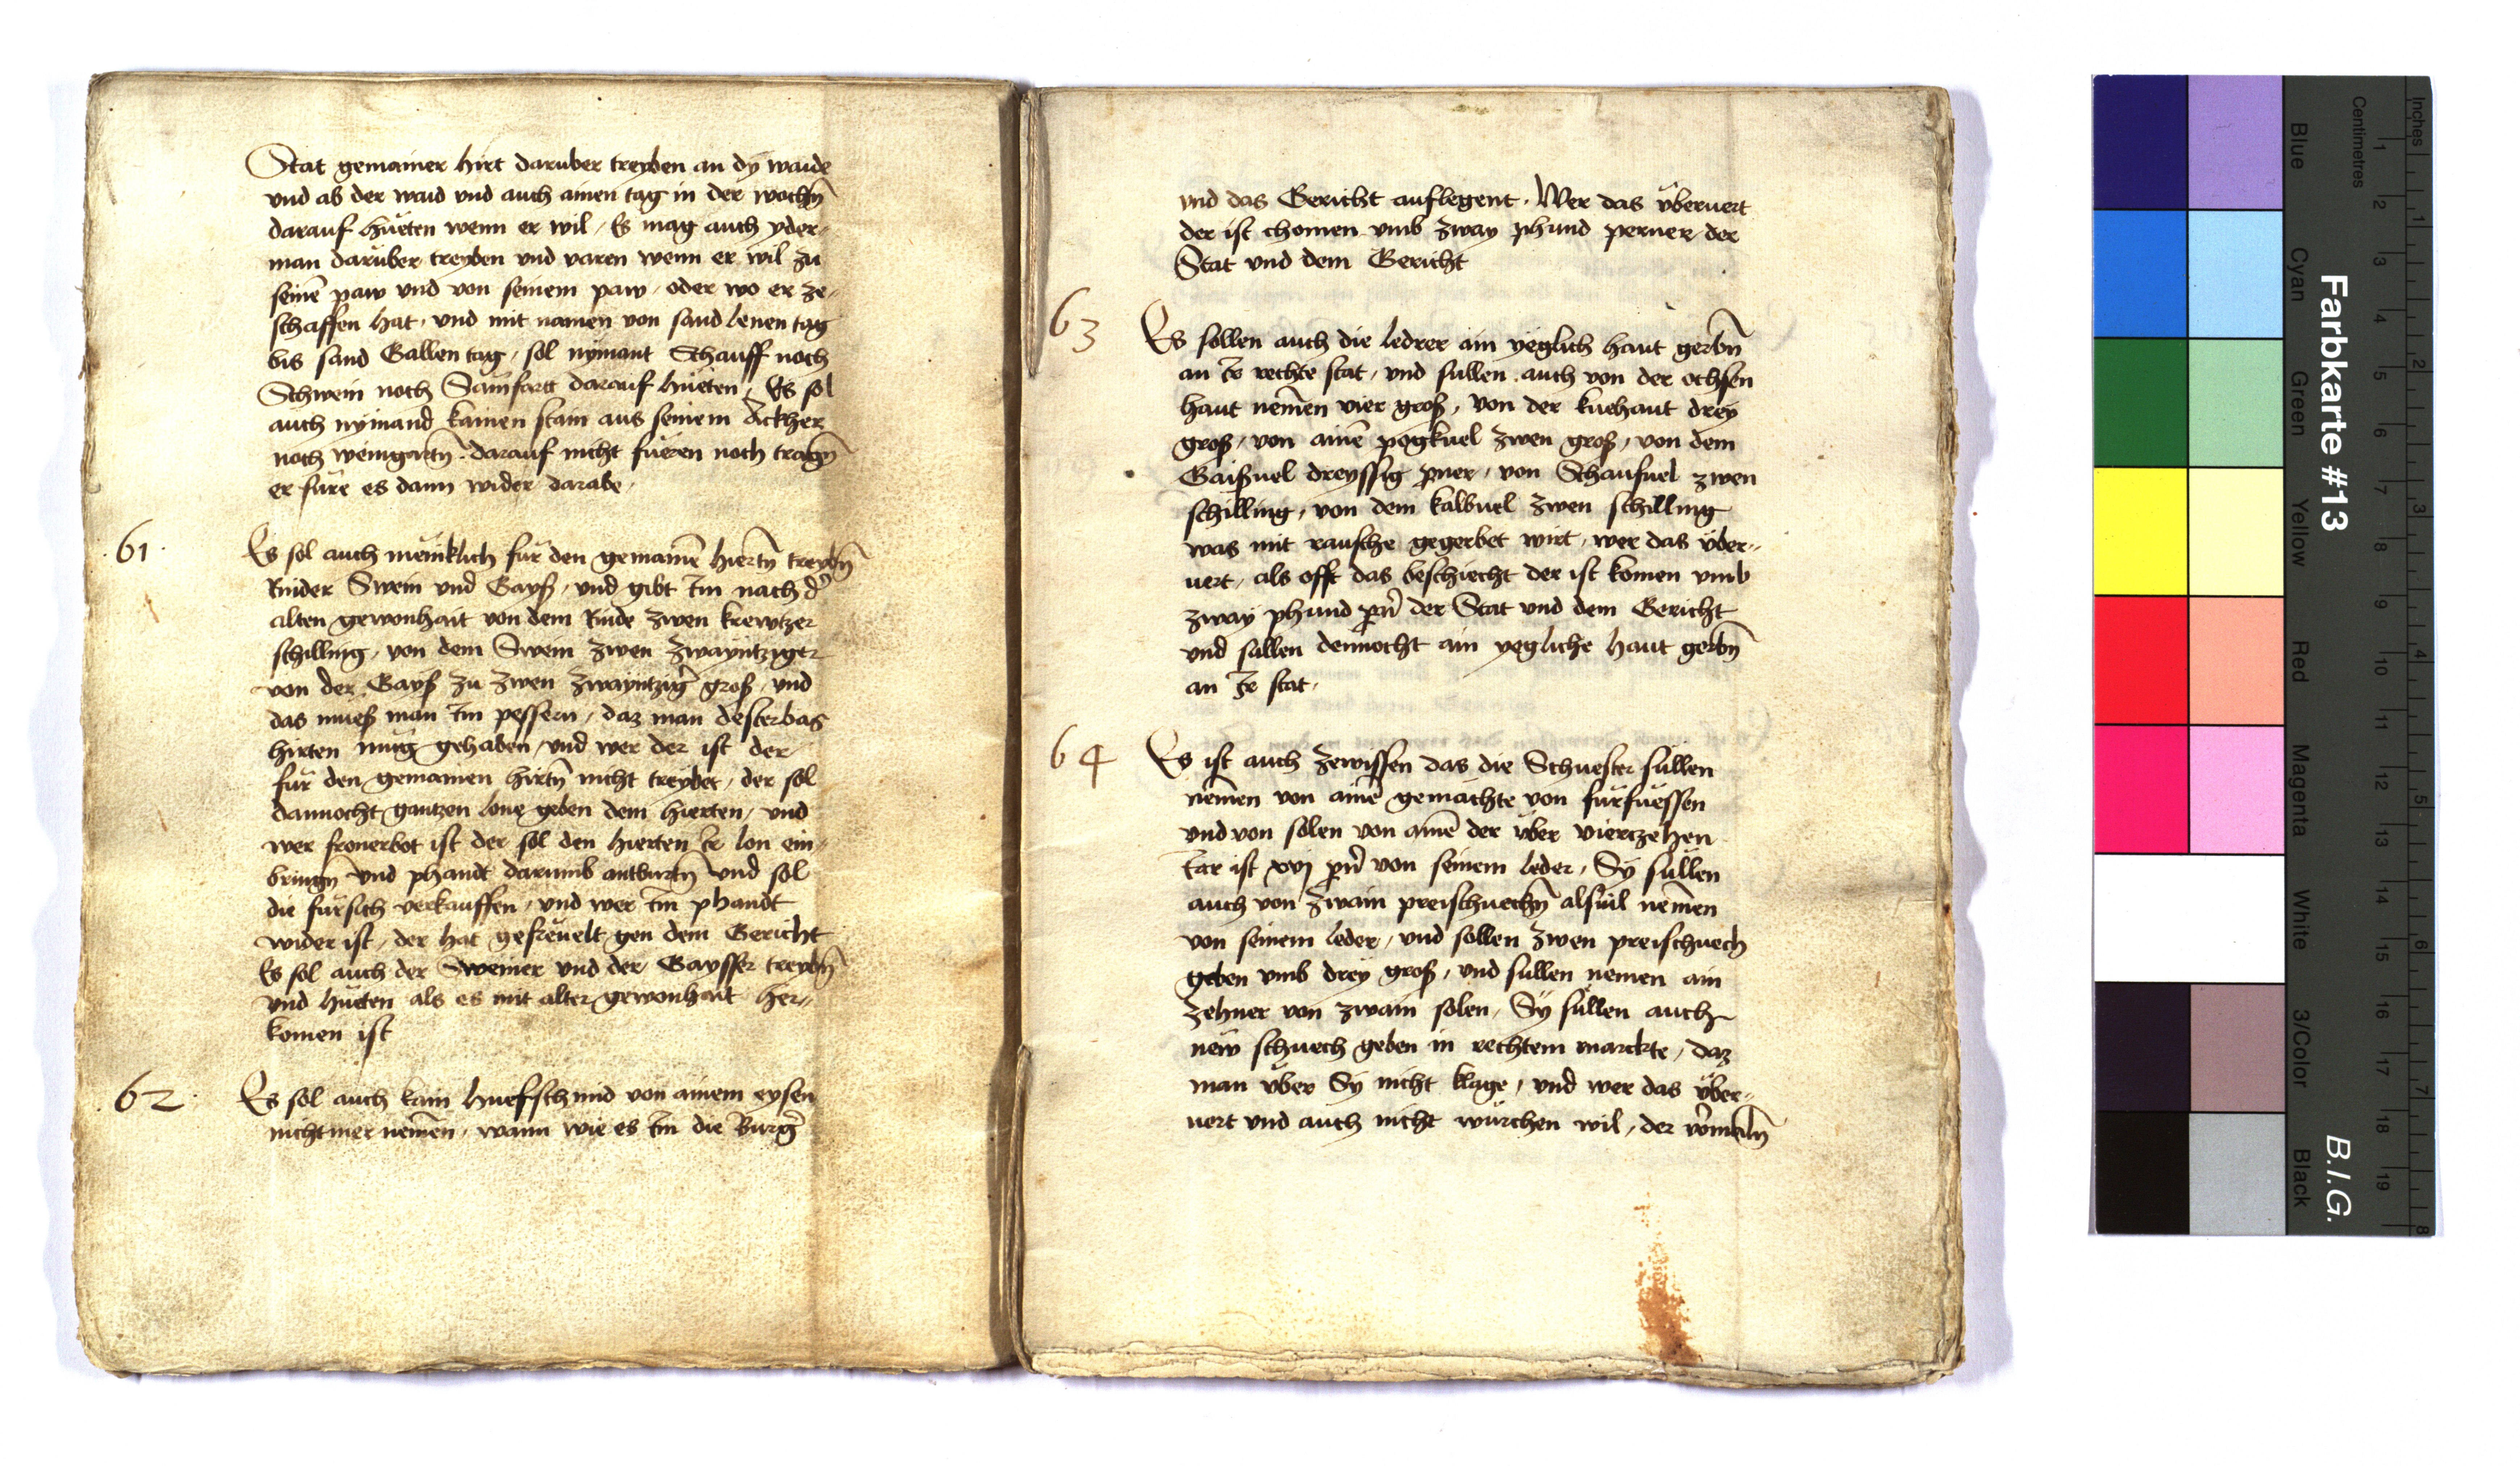 Stat gemainer hirt daruber treyben an dÿ waide
vnd ab der waid vnd auch ainen tag in der wochn̄
darauf hüeten wenn er wil / Es mag auch yder-
man darüber treyben vnd varen wenn er wil zu
seinē paw vnd von seinem paw / oder wo er ze-
schaffen hat / vnd mit namen von sand lenen tag
bis sand Gallen tag / sol nÿmant Schauff noch
Schwein noch darauf hüeten / Es sol
auch nymand kainen stain aus seinem Ackher
noch weingartn̄ darauf nicht füeren noch tragn̄
er füre es dann wider darabe /
61
Es sol auch meinklich für den gemainē hiertn̄ treybn̄
Rinder Swein vnd Gayß / vnd gibt im nach d̄
alten gewonhait von dem Rinde zwen krewtzer
schilling / von dem Swein zwen zwayntziger
von der Gayß zu zwen zwayntziḡ groß / vnd
das mueß man im pessern / daz man desterbas
hirten müg gehaben / vnd wer der ist der
für den gemainen hirtn̄ nicht treybet / der sol
dannocht gantzen lone geben dem hierten / vnd
wer fronerbot ist der sol den hierten ir lon ein-
bringn̄ vnd phandt darumb antburtn̄ vnd sol
die fürsich verkauffen / vnd wer im phandt
wider ist / der hat gefreuelt gen dem Gericht
Es sol auch der Sweiner vnd der Gaysser treybn̄
vnd hüeten als es mit alter gewonhait her-
komen ist
62
Es sol auch kain huefschmid von ainem eysen
nicht mer nemen / wann wie es im die Burḡ
vnd das Gericht auflegent / Wer das übervert
der ist chomen vmb zway phund perner der
Stat vnd dem Gericht
63
Es sollen auch die ledrer ain yeglich haut gerbn̄
an ir rechte stat / vnd sullen auch von der ochsen
haut nemen vier groß / von der kuehaut dreÿ
groß / von ainē pögkuel zwen groß / von dem
Gaisuel dreyssig p̄ner / von Schaufuel zwen
schilling / von dem kalbuel zwen schilling
was mit rausche gegerbet wirt / wer das über-
uert / als offt das beschiecht der ist komen vmb
zway phund pn̄ der Stat vnd dem Gericht
vnd sullen dennocht ain yegliche haut gerbn̄
an ir stat /
64
Es ist auch zewissen das die Schuester süllen
nemen von ainē gemächte von fürfüessen
vnd von solen von ainē der über viertzehen
iar ist xvj pn̄ von seinem leder / Sÿ süllen
auch von zwain preischuechn̄ alsuil nemen
von seinem leder / vnd sollen zwen preischuech
geben vmb drey groß / vnd sullen nemen ain
zehner von zwain solen / Sÿ süllen auch
new schuech geben in rechtem marckte / daz
man über Sy nicht klage / vnd wer das über-
uert vnd auch nicht würchen wil / der
Farbkarte #13
B.I.G.
Blue Cyan Green Yellow Red Magenta White 3/Color Black
Centimetres
1 2 3 4 5 6 7 8 9 10 11 12 13 14 15 16 17 18 19
Inches
1 2 3 4 5 6 7 8